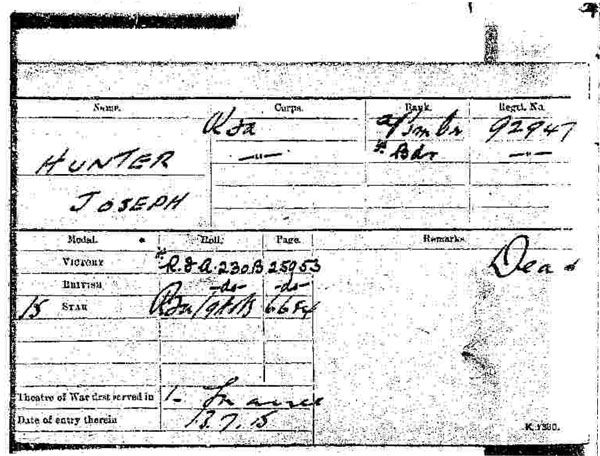 Name. Corps. Rank. Regtl. No.
RFA A/Bmbr 92947
HUNTER —"— Bdr —"—
JOSEPH
Medal. Roll. Page. Remarks.
VICTORY R.F.A. 230B 25953 Dead
BRITISH -do- -do-
15 STAR RFA 6654
Theatre of War first served in 1- France
Date of entry therein 13.7.15
K. 1380.